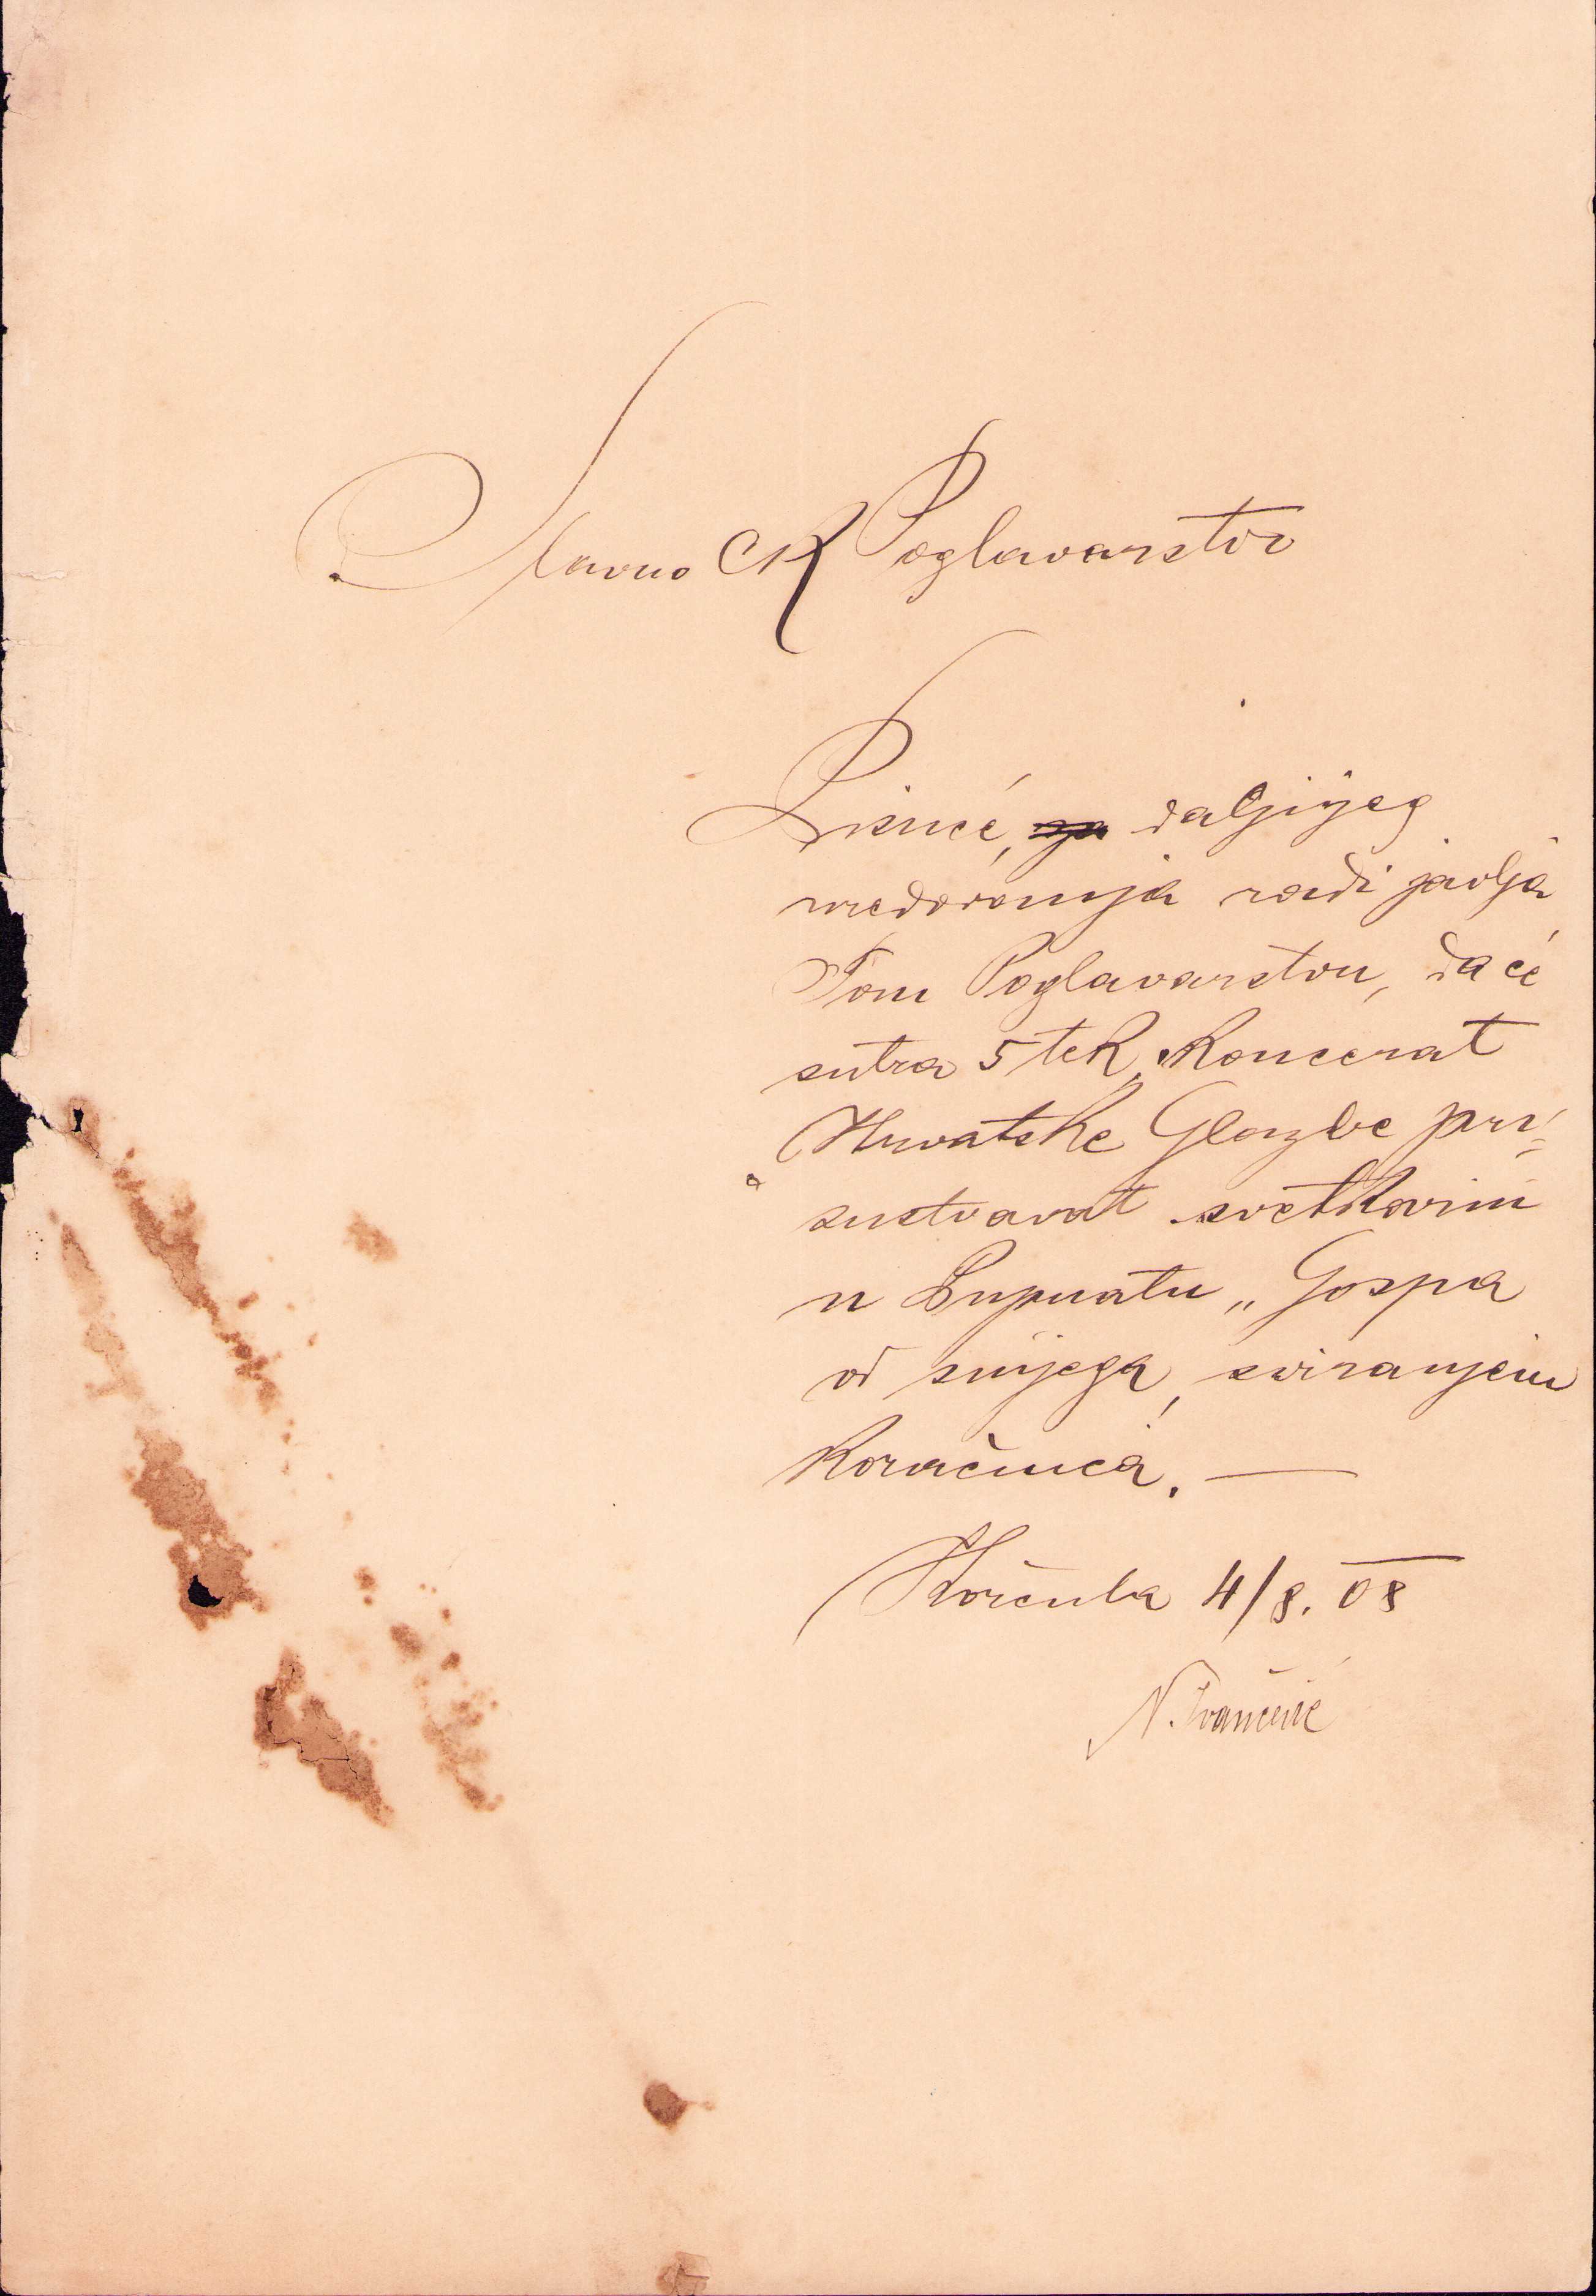 Slavno CK Poglavarstvo
Pisuće, daljnjeg
uredovanja radi javlja
Tom Poglavarstvu, da će
sutra 5 tek. Koncerat
Hrvatske Glazbe pri=
sustvovat svetkovini
u Lupnatu „Gospa
od snijega, sviranjem
Koračnica. —
Korčula 4/8. 08
N. Ivančević